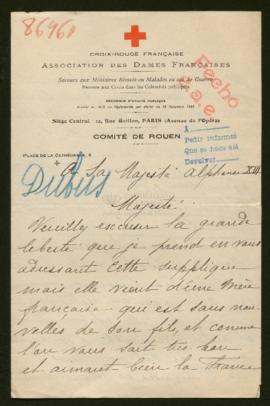 86960
CROIX-ROUGE FRANÇAISE
ASSOCIATION DES DAMES FRANÇAISES
Secours aux Militaires Blessés ou Malades en cas de Guerre
Secours aux Civils dans les Calamités publiques
Siège Central : 12, Rue Gaillon, PARIS (Avenue de l'Opéra)
COMITÉ DE ROUEN
Hecho
PLACE DE LA CATHÉDRALE, 4
Pedir informes
Que se hace allá
Devolver
Dubus
A Sa Majesté Alphonse XIII
Majesté
Veuilly excuser la grande
liberté que je prend en vous
adressant cette supplique
mais elle vient d'une mère
française qui est sans nou-
velles de son fils, et comme
l'on vous sait très bon
et aimant bien la France